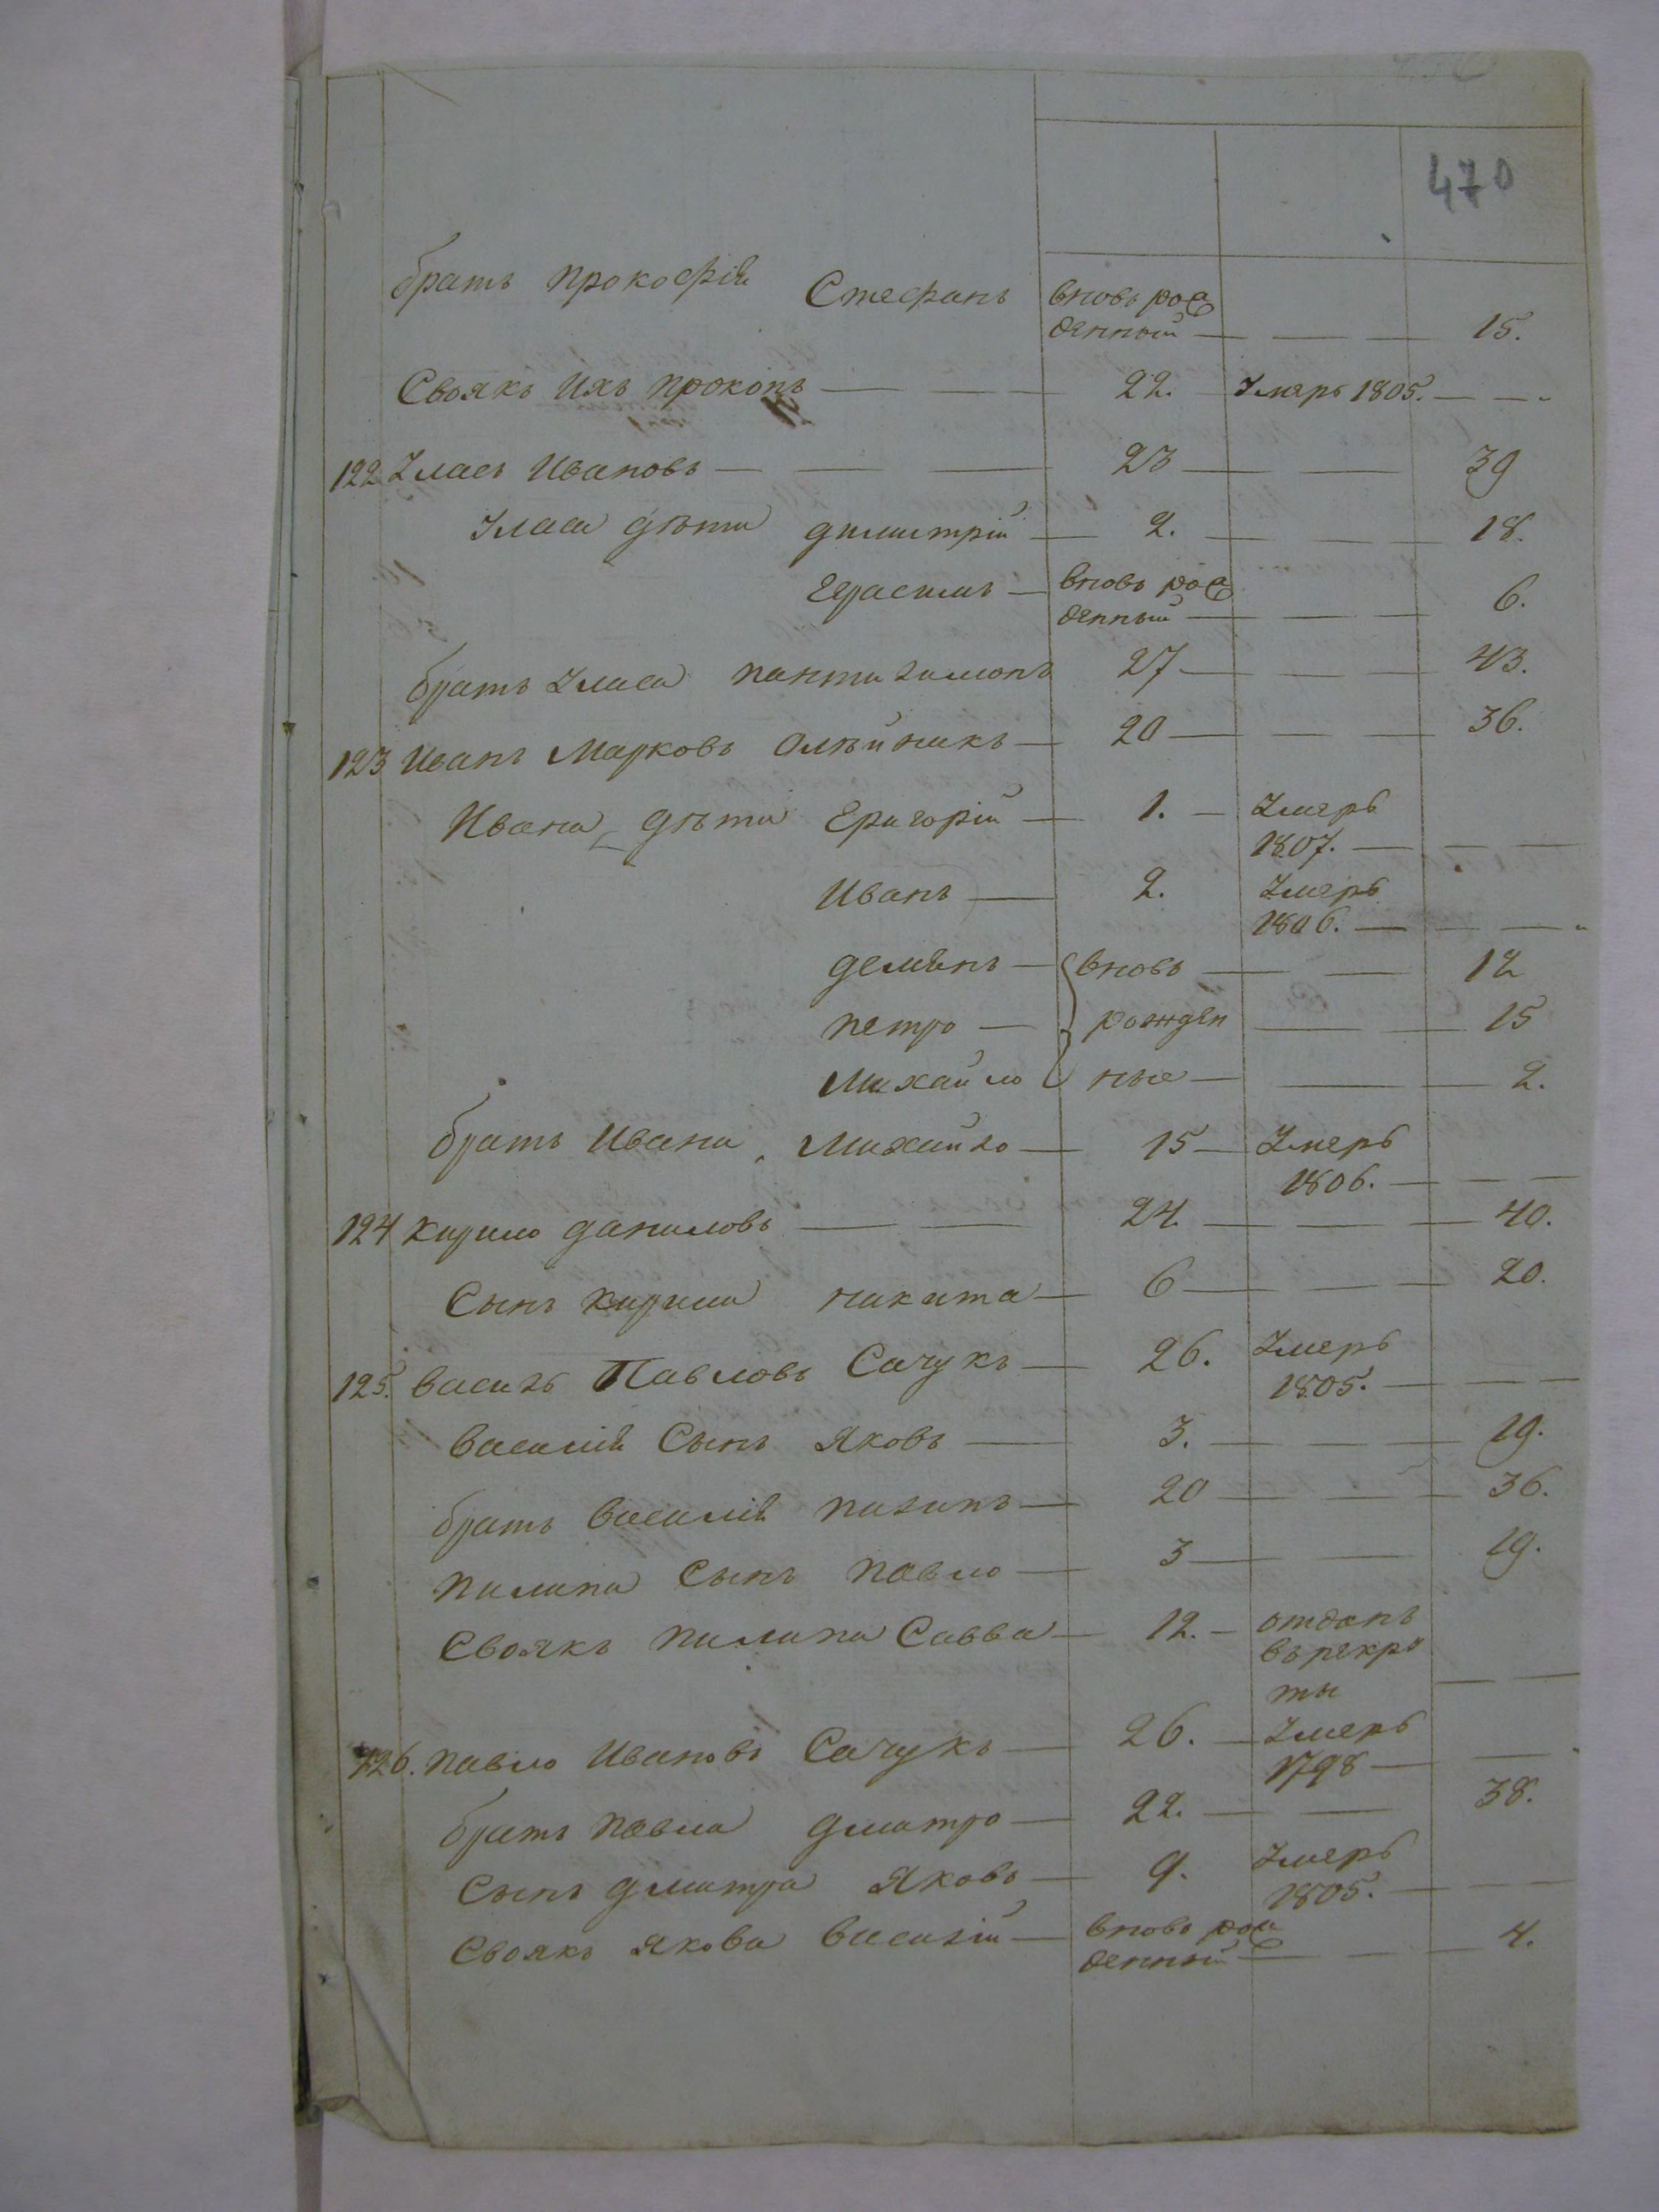 470
братъ Прокофій Стефанъ вновь рож
денный — — — 15.
Своякъ Ихъ Прокопъ — — 22. Умеръ 1805. — —
122 Уласъ Ивановъ — — — 23 — — 39
Уласа дѣти Димитрій — 2. — — — 18.
Герасимъ — вновь рож
денный — — — 6.
братъ Уласа Пантилимонъ 27 — — — 43.
123 Иванъ Марковъ Олѣйникъ — 20 — — — 36.
Ивана дѣти Григорій — 1. — Умеръ
1807. — — —
Иванъ — 2. Умеръ
1806. — — —
Демянъ — вновь — — 12
Петро — рожден — — 15
Михайло ные — — — 2.
братъ Ивана Михайло — 15 — Умеръ
1806. — — —
124 Кирило Даниловъ — — 24. — — — 40.
Сынъ Кирила Никита — 6 — — — 20.
125. Василь Павловъ Сачукъ — 26. Умеръ
1805. — — —
Василій Сынъ Яковъ — 3. — — — 19.
братъ Василій Пилипъ — 20 — — — 36.
Пилипа Сынъ Павло — 3 — — 19.
Своякъ Пилипа Савва — 12. — отданъ
въ рекру
ты — —
126. Павло Ивановъ Сачукъ — 26. — Умеръ
1798 — —
братъ Павла Дмитро — 22. — — 38.
Сынъ Дмитра Яковъ — 9. Умеръ
1805. — — —
Своякъ Якова Василій — вновь рож
денный — — — 4.